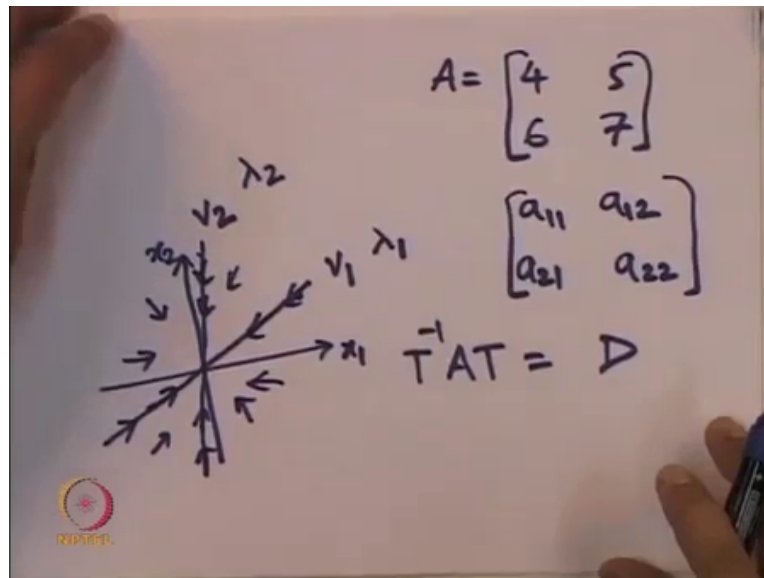 A = [4 5
6 7]
[a11 a12
a21 a22]
T⁻¹AT = D
λ2
v2
x2
v1 λ1
x1
NPTEL